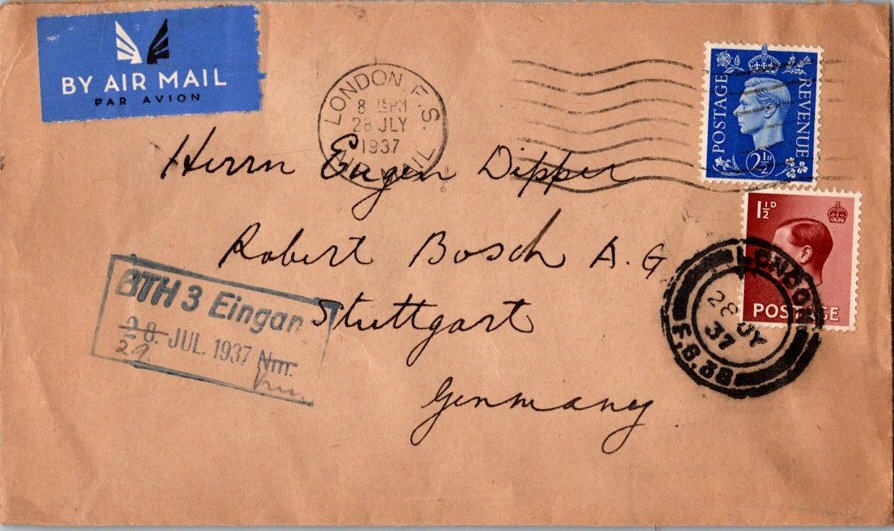 BY AIR MAIL
PAR AVION
LONDON F.S.
28 JLY
1937
AIR MAIL
POSTAGE
REVENUE
2½D
1½D
POSTAGE
LONDON
28 JY
37
F.S.38
Herrn Eugen Dipper
Robert Bosch A.G
Stuttgart
Germany
BTH 3 Eingan
28. JUL. 1937 Nm.
29